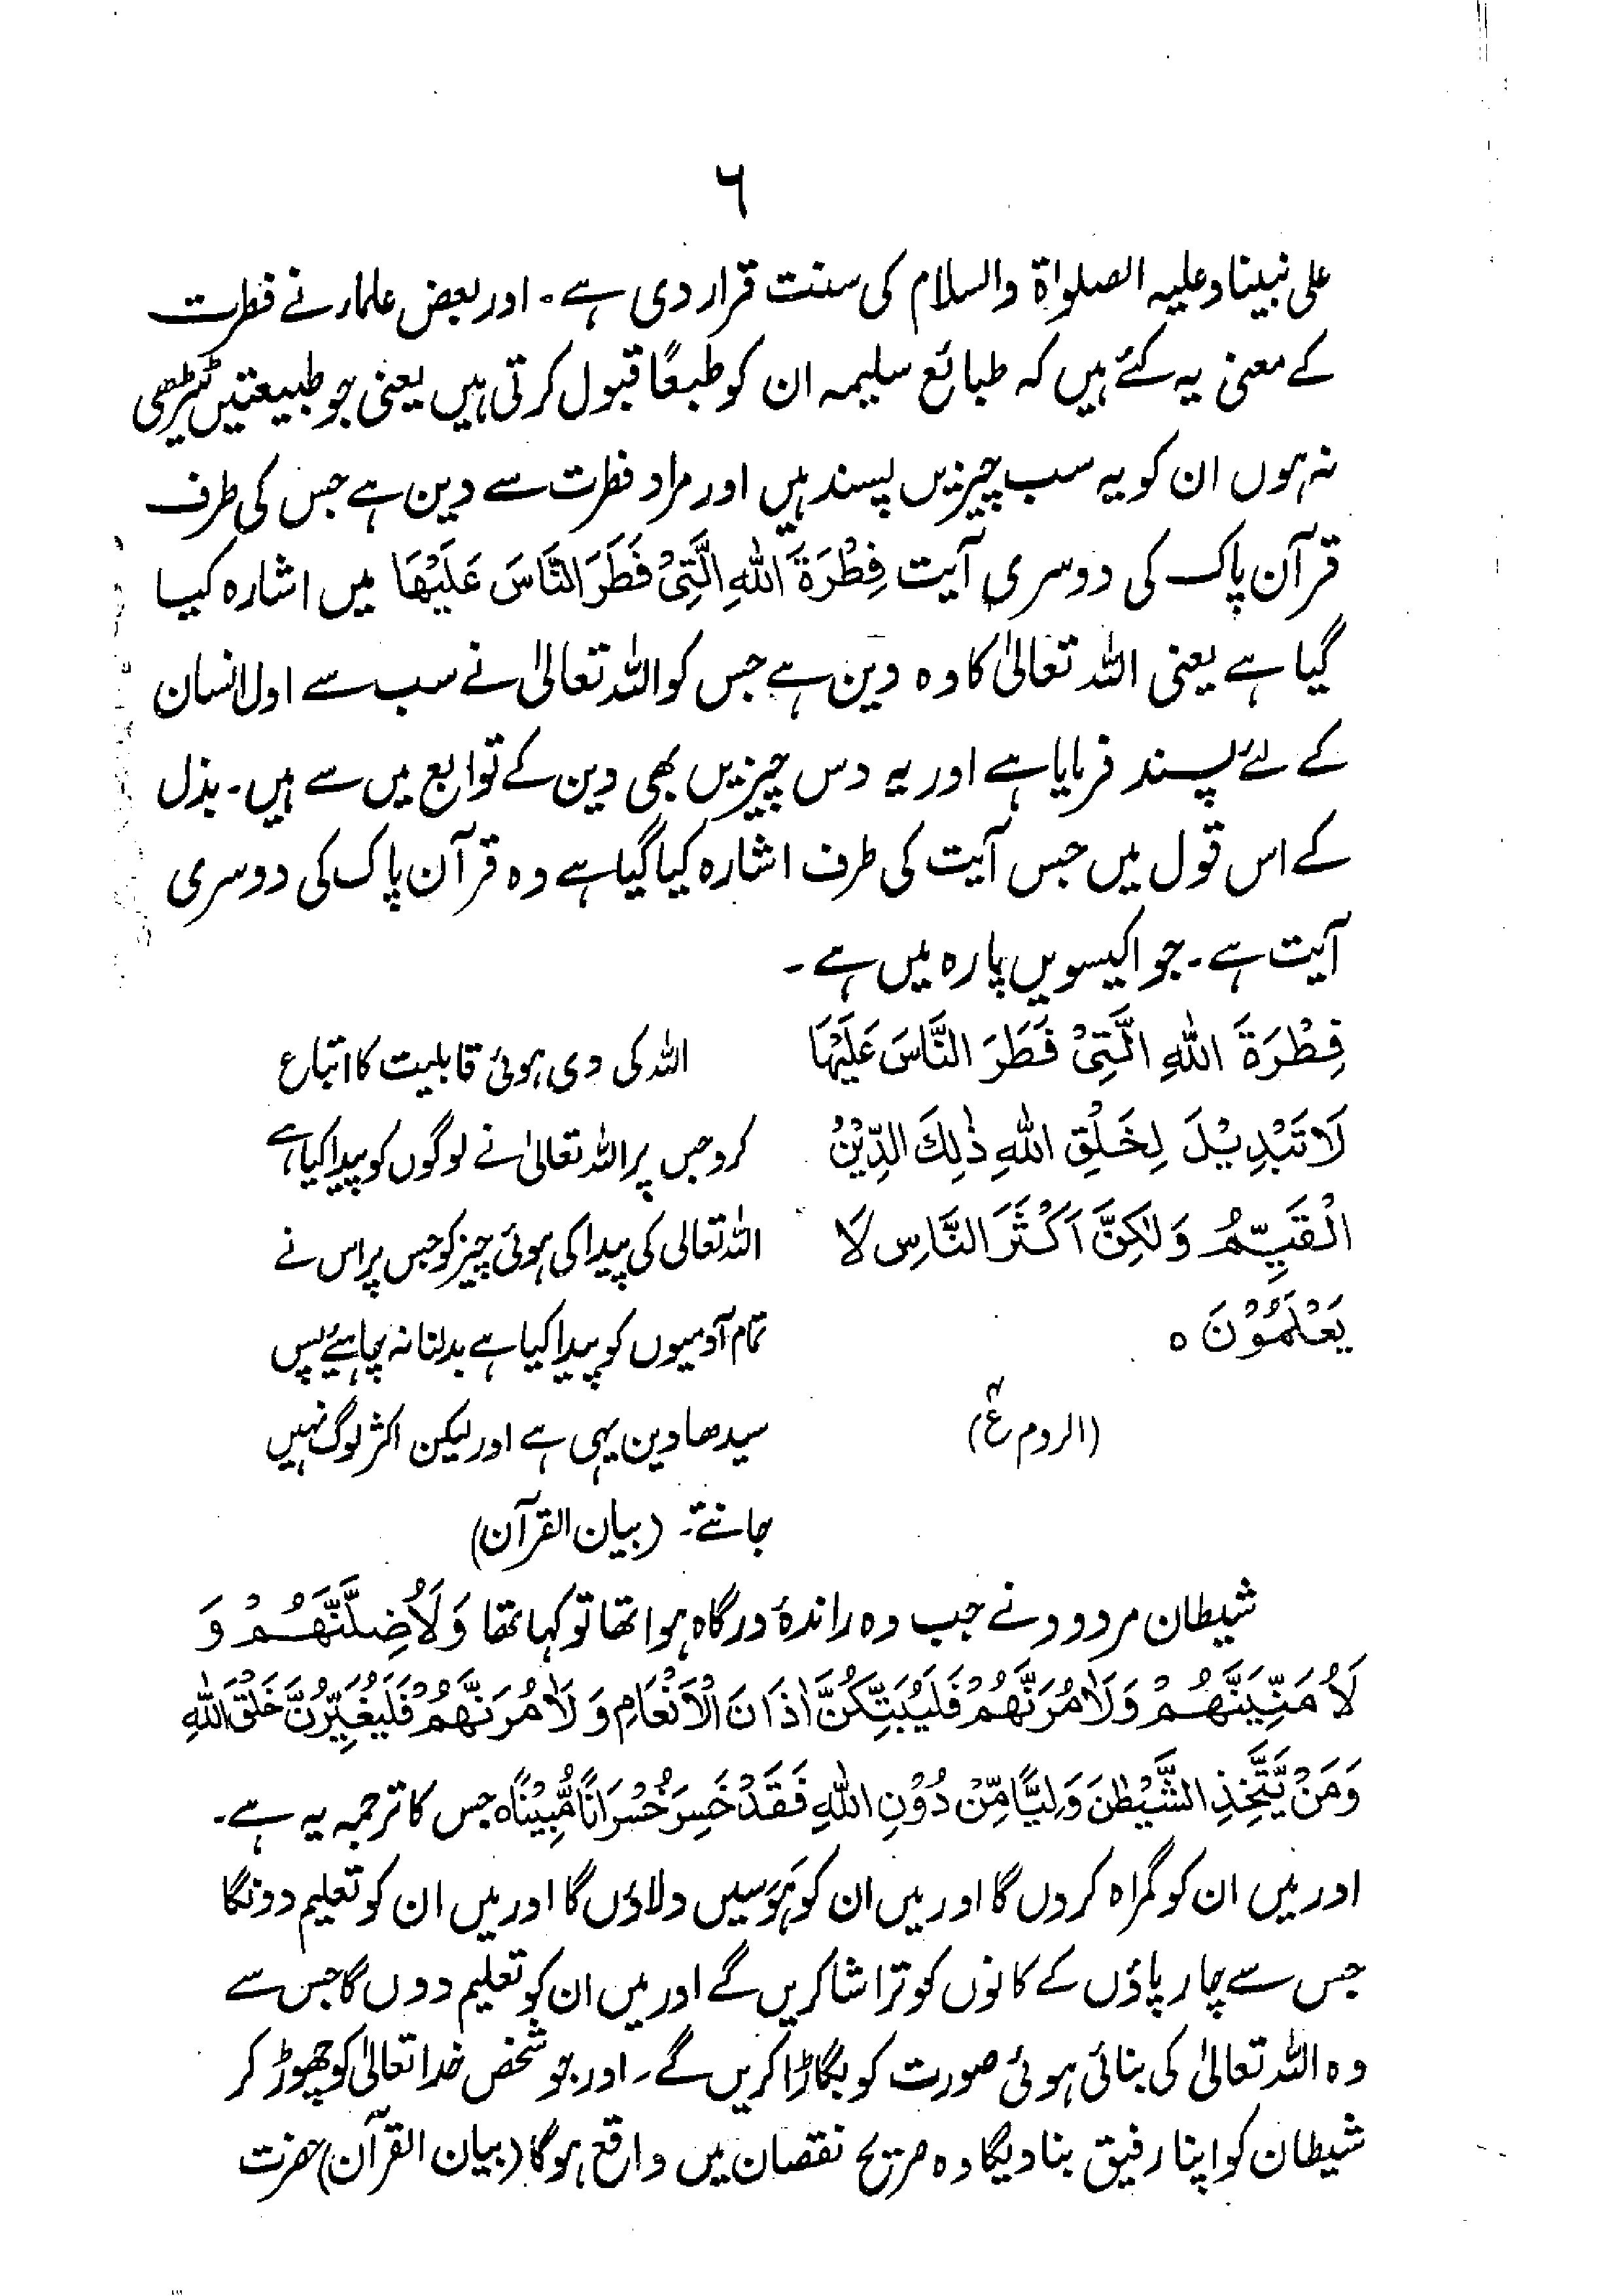 ۶
علی نبینا وعلیہ الصلوٰۃ والسلام کی سنت قرار دی ہے۔ اور بعض علماء نے فطرت
کے معنیٰ یہ کئے ہیں کہ طبائع سلیمہ ان کو طبعًا قبول کرتی ہیں یعنی جو طبیعتیں ٹیڑھی
نہ ہوں ان کو یہ سب چیزیں پسند ہیں اور مراد فطرت سے دین ہے جس کی طرف
قرآن پاک کی دوسری آیت فِطْرَۃَ اللّٰہِ الَّتِیْ فَطَرَ النَّاسَ عَلَیْھَا میں اشارہ کیا
گیا ہے یعنی اللہ تعالیٰ کا وہ دین ہے جس کو اللہ تعالیٰ نے سب سے اول انسان
کے لئے پسند فرمایا ہے اور یہ دس چیزیں بھی دین کے توابع میں سے ہیں۔ بذل
کے اس قول میں جس آیت کی طرف اشارہ کیا گیا ہے وہ قرآن پاک کی دوسری
آیت ہے۔ جو اکیسویں پارہ میں ہے۔
فِطْرَۃَ اللّٰہِ الَّتِیْ فَطَرَ النَّاسَ عَلَیْہَا
لَا تَبْدِیْلَ لِخَلْقِ اللّٰہِ ذٰلِکَ الدِّیْنُ
الْقَیِّمُ وَلٰکِنَّ اَکْثَرَ النَّاسِ لَا
یَعْلَمُوْنَ ہ
(الروم ع۴)
اللہ کی دی ہوئی قابلیت کا اتباع
کرو جس پر اللہ تعالیٰ نے لوگوں کو پیدا کیا ہے
اللہ تعالی کی پیدا کی ہوئی چیز کو جس پر اس نے
تمام آدمیوں کو پیدا کیا ہے بدلنا نہ چاہیئے پس
سیدھا دین یہی ہے اور لیکن اکثر لوگ نہیں
جانتے۔ (بیان القرآن)
شیطان مردود نے جب وہ راندۂ درگاہ ہوا تھا تو کہا تھا وَلَاُضِلَّنَّھُمْ وَ
لَاُمَنِّیَنَّھُمْ وَلَاٰمُرَنَّھُمْ فَلَیُبَتِّکُنَّ اٰذَانَ الْاَنْعَامِ وَلَاٰمُرَنَّھُمْ فَلَیُغَیِّرُنَّ خَلْقَ اللّٰہِ
وَمَنْ یَّتَّخِذِ الشَّیْطٰنَ وَلِیًّا مِّنْ دُوْنِ اللّٰہِ فَقَدْ خَسِرَ خُسْرَانًا مُّبِیْنًا ہ جس کا ترجمہ یہ ہے۔
اور میں ان کو گمراہ کردوں گا اور میں ان کو ہَوَسیں دلاؤں گا اور میں ان کو تعلیم دونگا
جس سے چار پاؤں کے کانوں کو تراشا کریں گے اور میں ان کو تعلیم دوں گا جس سے
وہ اللہ تعالیٰ کی بنائی ہوئی صورت کو بگاڑا کریں گے۔ اور جو شخص خدا تعالیٰ کو چھوڑ کر
شیطان کو اپنا رفیق بنا دیگا وہ صریح نقصان میں واقع ہوگا (بیان القرآن) حضرت